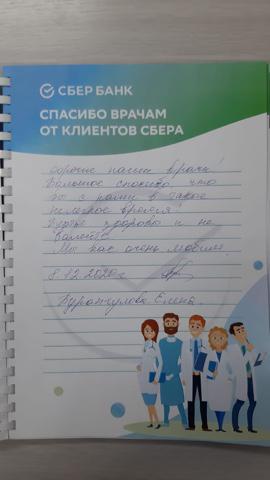 СБЕР БАНК
СПАСИБО ВРАЧАМ
ОТ КЛИЕНТОВ СБЕРА
Дорогие наши врачи!
Большое спасибо, что
вы с нами в такое
нелегкое время!
Будьте здоровы и не
болейте
Мы вас очень любим!
8.12.2020г.
Елена.